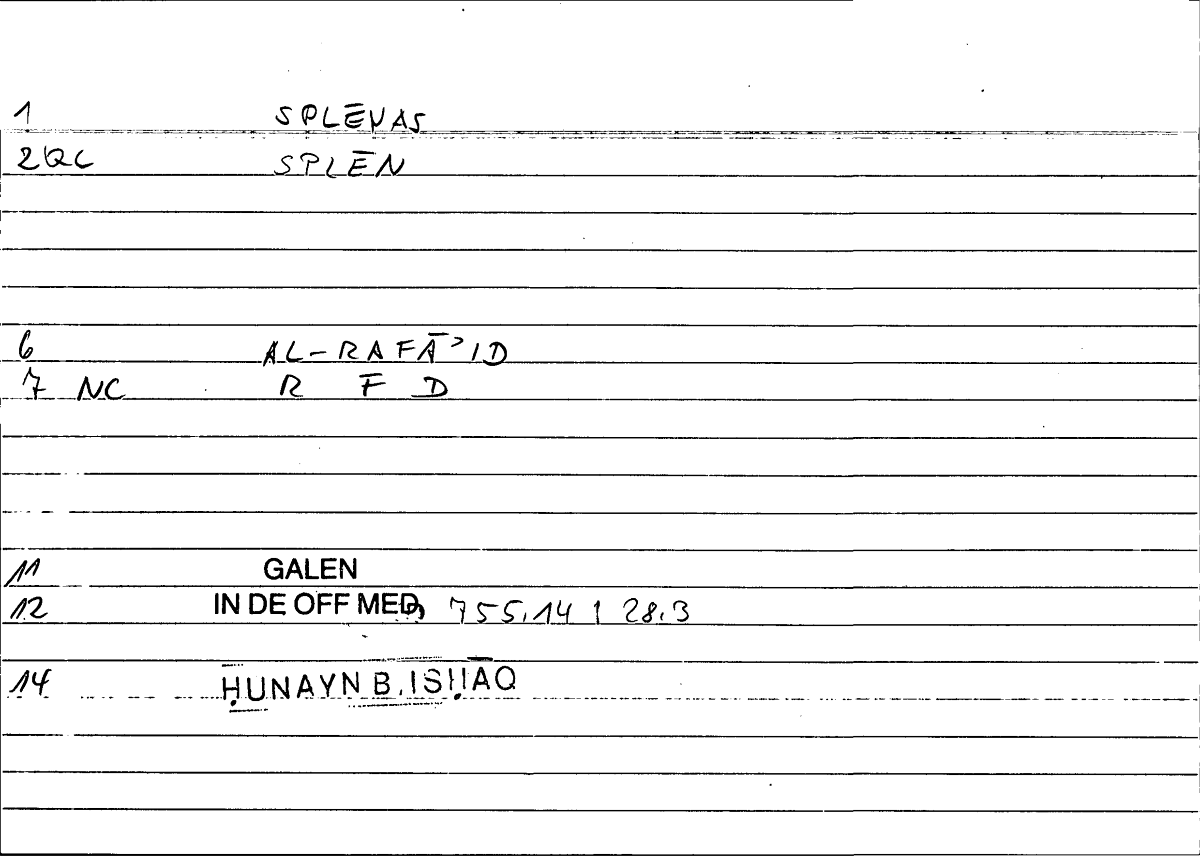 1 SPLĒNAS
2QC SPLĒN
6 AL-RAFĀʾID
7 NC R F D
11 GALEN
12 IN DE OFF MED, 755.14 | 28.3
14 ḤUNAYN B. ISḤĀQ